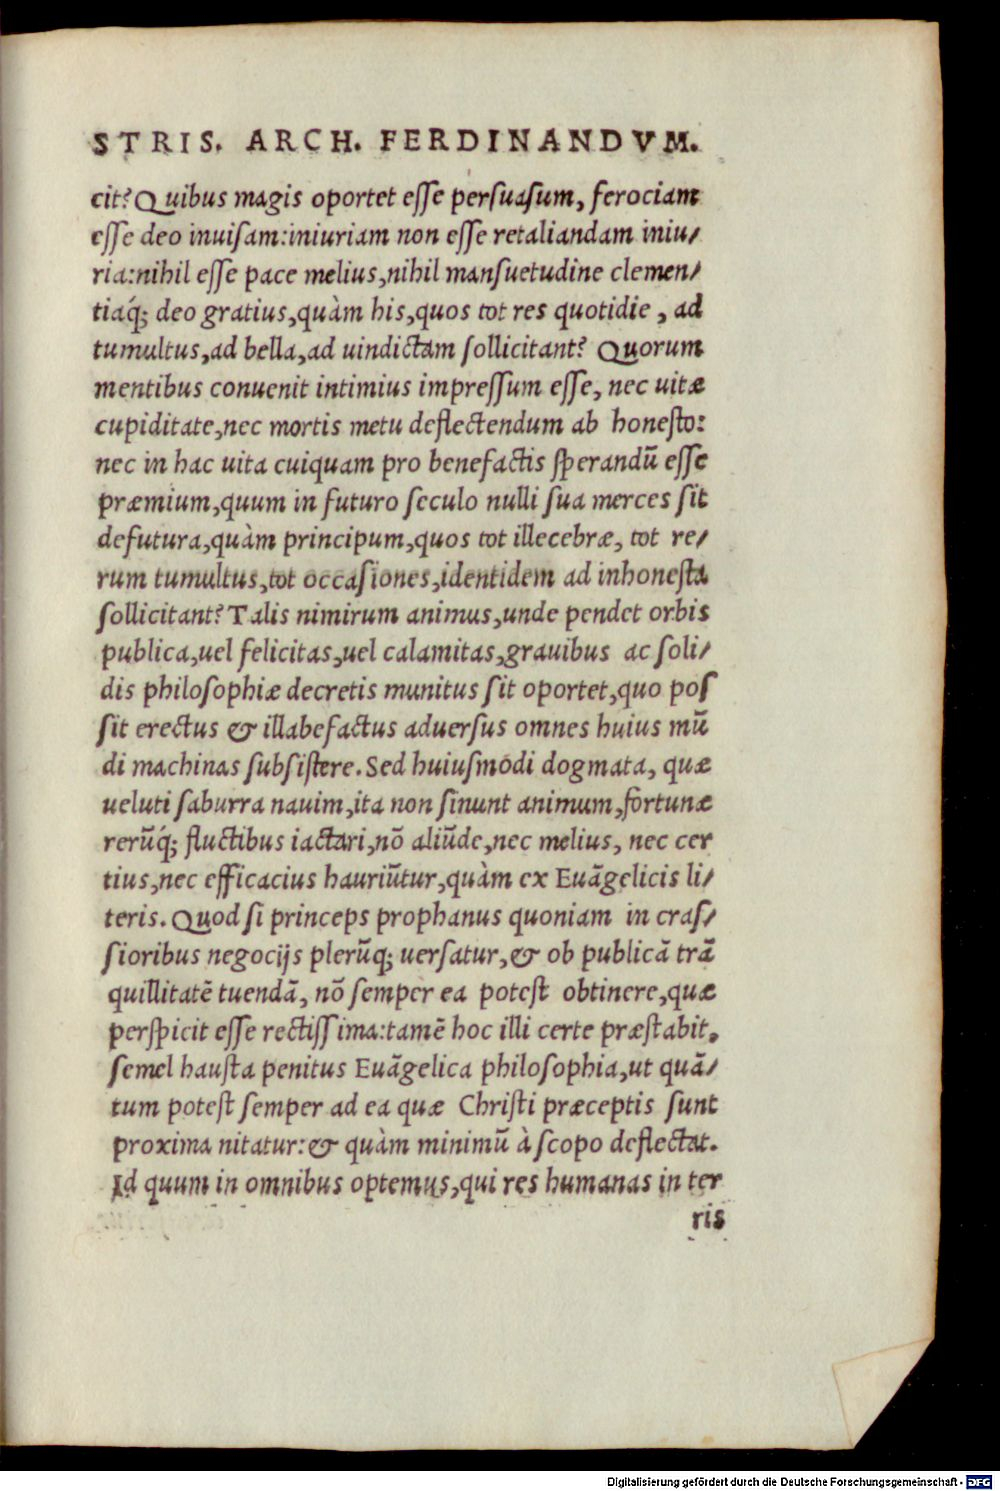 STRIS. ARCH. FERDINANDVM.
cit? Quibus magis oportet esse persuasum, ferociam
esse deo inuisam: iniuriam non esse retaliandam iniu/
ria: nihil esse pace melius, nihil mansuetudine clemen/
tiaq́; deo gratius, quàm his, quos tot res quotidie, ad
tumultus, ad bella, ad uindictam sollicitant? Quorum
mentibus conuenit intimius impressum esse, nec uitæ
cupiditate, nec mortis metu deflectendum ab honesto:
nec in hac uita cuiquam pro benefactis sperandũ esse
præmium, quum in futuro seculo nulli sua merces sit
defutura, quàm principum, quos tot illecebræ, tot re/
rum tumultus, tot occasiones, identidem ad inhonesta
sollicitant? Talis nimirum animus, unde pendet orbis
publica, uel felicitas, uel calamitas, grauibus ac soli/
dis philosophiæ decretis munitus sit oportet, quo pos
sit erectus & illabefactus aduersus omnes huius mũ
di machinas subsistere. Sed huiusmodi dogmata, quæ
ueluti saburra nauim, ita non sinunt animum, fortunæ
rerũq́; fluctibus iactari, nõ aliũde, nec melius, nec cer
tius, nec efficacius hauriũtur, quàm ex Euãgelicis li/
teris. Quod si princeps prophanus quoniam in cras/
sioribus negocijs plerũq; uersatur, & ob publicã trã
quillitatẽ tuendã, nõ semper ea potest obtinere, quæ
perspicit esse rectissima: tamẽ hoc illi certe præstabit,
semel hausta penitus Euãgelica philosophia, ut quã/
tum potest semper ad ea quæ Christi præceptis sunt
proxima nitatur: & quàm minimũ à scopo deflectat.
Id quum in omnibus optemus, qui res humanas in ter
ris
Digitalisierung gefördert durch die Deutsche Forschungsgemeinschaft - DFG